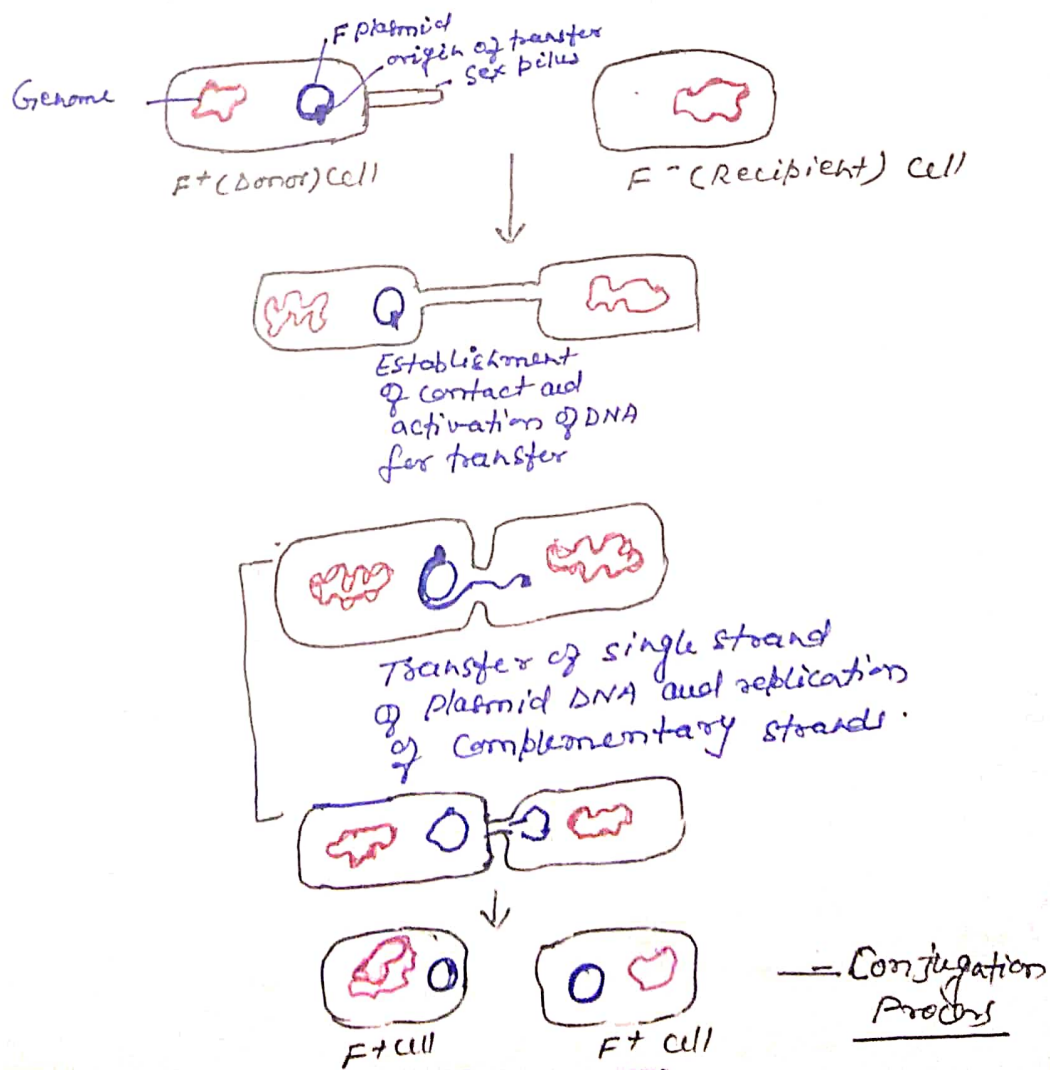 F plasmid
origin of transfer
sex pilus
Genome
F+ (Donor) Cell
F - (Recipient) Cell
Establishment
of contact and
activation of DNA
for transfer
Transfer of single strand
of plasmid DNA and replication
of complementary strands.
F+ cell
F+ cell
- Conjugation
Process